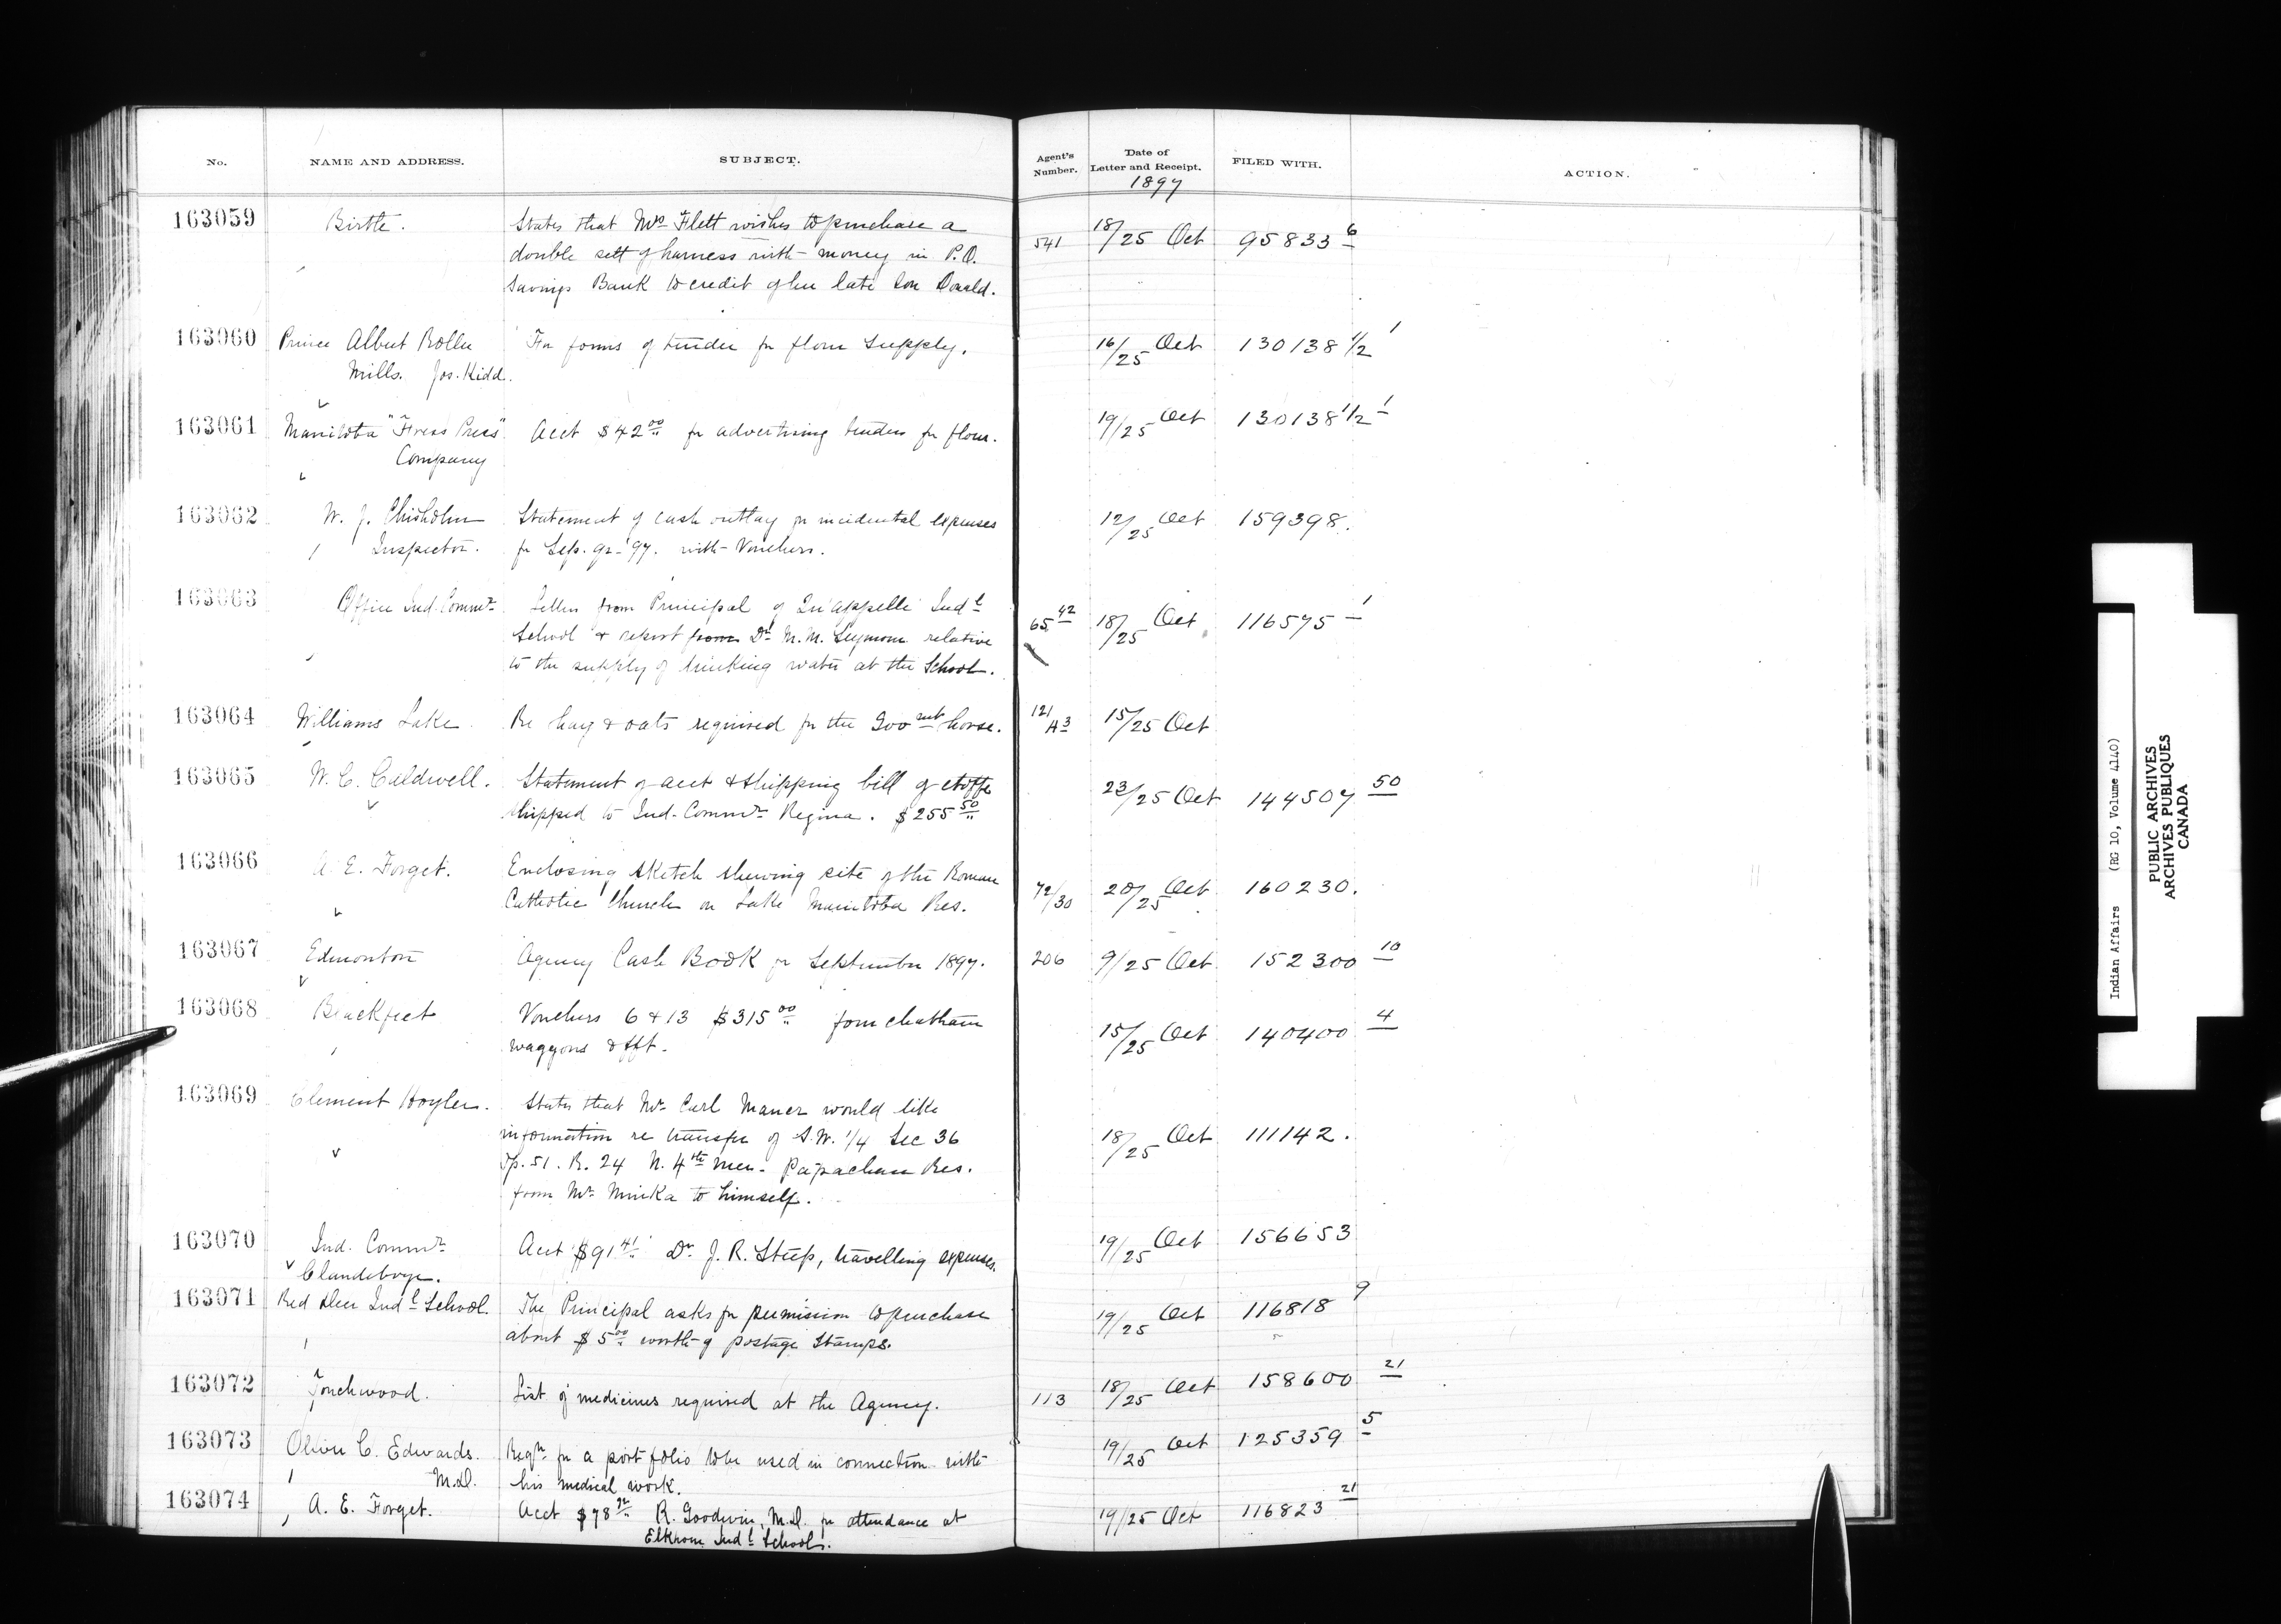 No. NAME AND ADDRESS. SUBJECT. Agent's Number. Date of Letter and Receipt. FILED WITH. ACTION.
1897
163059 Birtle. States that Mrs Flett wishes to purchase a 541 18/25 Oct 95833 6
double sett of harness with money in P.O.
Savings Bank to credit of her late Son Donald.
163060 Prince Albert Roller For forms of tender for flour Supply. 16/25 Oct 130138 1/2 1
Mills. Jos. Kidd.
163061 Manitoba "Free Press" Acct $42 00 for advertising tenders for flour. 19/25 Oct 130138 1/2 1
Company
163062 W. J. Chisholm Statement of cash outlay for incidental expenses 12/25 Oct 159398.
Inspector. for Sep. qr. 97. with Vouchers.
163063 Office Ind. Commr Letter from Principal of Qu'appelle Indl 65 42 18/25 Oct 116575 1
School & report from Dr M. M. Seymour relative
to the supply of drinking water at the School.
163064 Williams Lake Re hay & oats required for the Govmt horse. 121/A3 15/25 Oct
163065 W. C. Caldwell. Statement of acct & Shipping bill of etoffe 23/25 Oct 144507 50
shipped to Ind. Commr Regina. $255 50
163066 A. E. Forget. Enclosing sketch shewing site of the Roman 72/30 20/25 Oct 160230.
Catholic Church on Lake Manitoba Res.
163067 Edmonton Agency Cash Book for September 1897. 206 9/25 Oct 152300 10
163068 Blackfeet Vouchers 6 & 13 $315 00 four chatham 15/25 Oct 140400 4
waggons & fft.
163069 Clement Hoyler. States that Mr Carl Maner would like
information re transfer of S.W. 1/4 Sec 36 18/25 Oct 111142.
Tp. 51. R. 24 W. 4th Mer. Papachase Res.
from Mr Minka to himself.
163070 Ind. Commr Acct $91 41 Dr J. R. Steep, travelling expenses. 19/25 Oct 156653
Clandeboye.
163071 Red Deer Indl School. The Principal asks for permission to purchase 19/25 Oct 116818 9
about $5 00 worth of postage Stamps.
163072 Touchwood. List of medicines required at the Agency. 113 18/25 Oct 158600 21
163073 Oliver C. Edwards. Reqn for a port folio to be used in connection with 19/25 Oct 125359 5
M.D. his medical work.
163074 A. E. Forget. Acct $78 R. Goodwin, M.D. for attendance at 19/25 Oct 116823 21
Elkhorn Indl School.
Indian Affairs (RG 10, Volume 4140)
PUBLIC ARCHIVES
ARCHIVES PUBLIQUES
CANADA